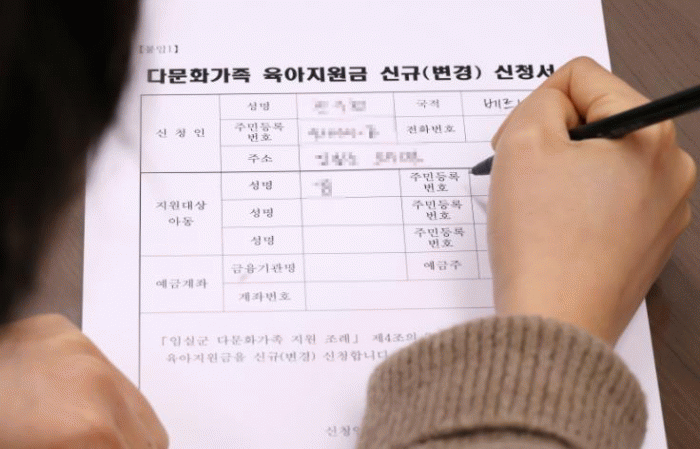 【붙임1】
다문화가족 육아지원금 신규(변경) 신청서
신 청 인 성명 국적
주민등록번호 전화번호
주소
지원대상 아동 성명 주민등록번호
성명 주민등록번호
성명 주민등록번호
예금계좌 금융기관명 예금주
계좌번호
「임실군 다문화가족 지원 조례」 제4조의
육아지원금을 신규(변경) 신청합니다.